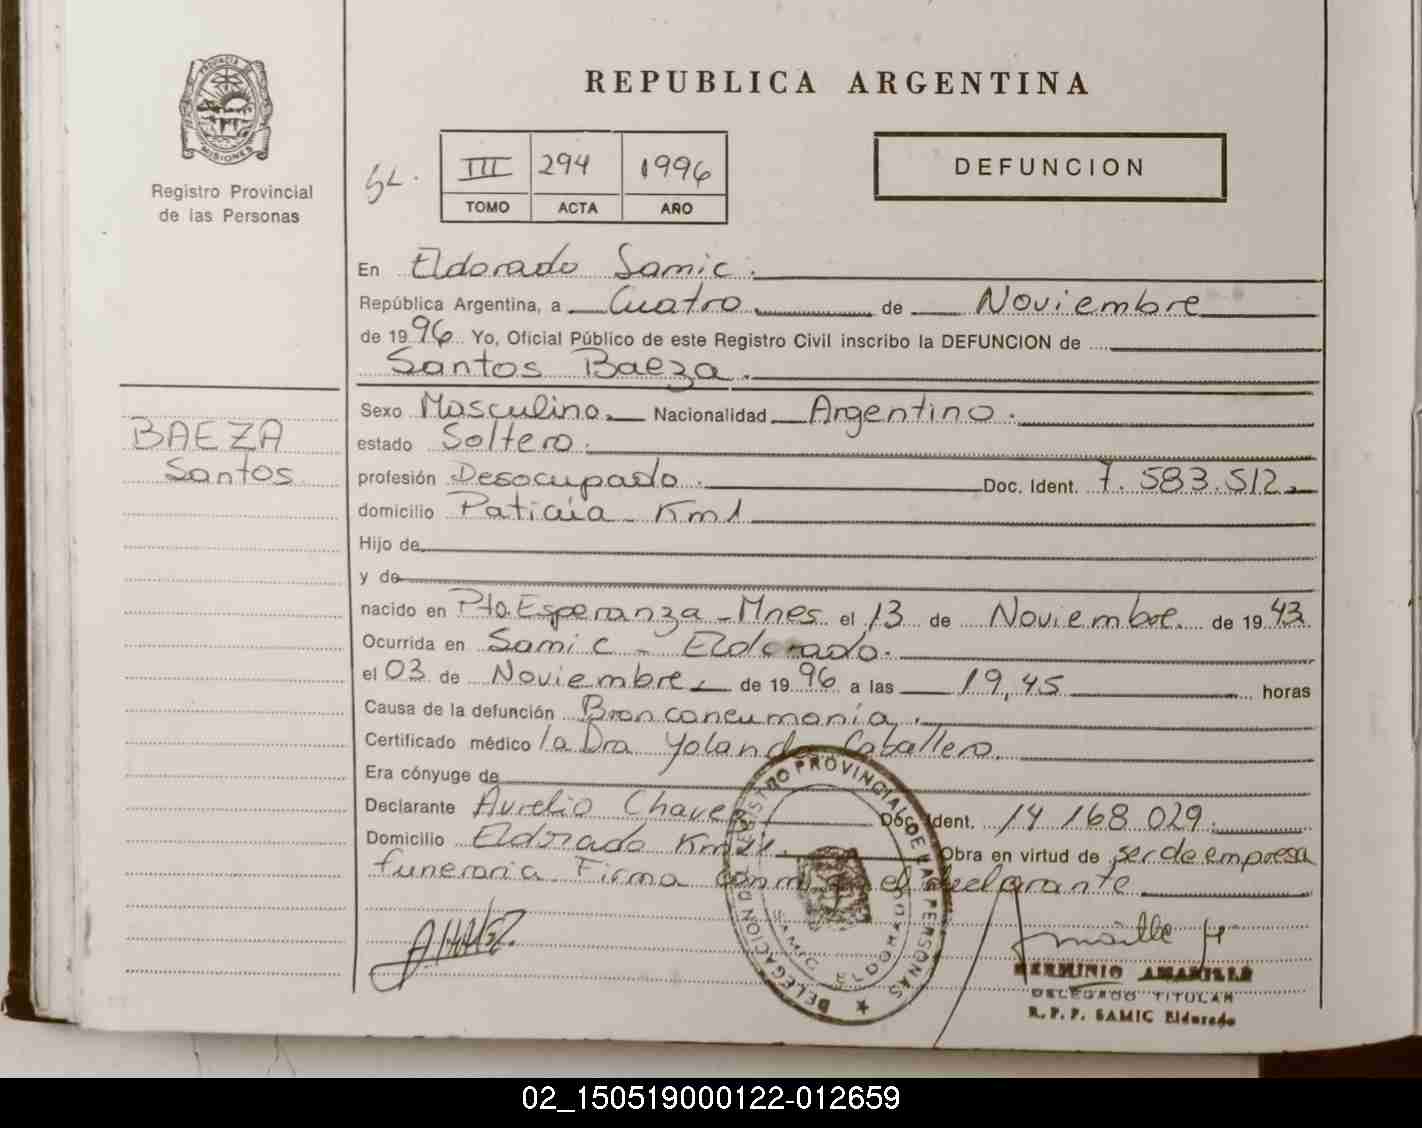 PROVINCIA DE
MISIONES
Registro Provincial
de las Personas
BAEZA
Santos
REPUBLICA ARGENTINA
III 294 1996
TOMO ACTA AÑO
DEFUNCION
En Eldorado Samic.
República Argentina, a Cuatro de Noviembre
de 1996 Yo, Oficial Público de este Registro Civil inscribo la DEFUNCION de
Santos Baeza.
Sexo Masculino. Nacionalidad Argentino.
estado Soltero.
profesión Desocupado. Doc. Ident. 7.583.512.
domicilio Km1
Hijo de
y de
nacido en Pto. Esperanza - Mnes. el 13 de Noviembre. de 1943.
Ocurrida en Samic - Eldorado.
el 03 de Noviembre. de 1996 a las 19,45 horas
Causa de la defunción Bronconeumonía.
Certificado médico la Dra Yolanda Caballero.
Era cónyuge de
Declarante Aurelio Chavez Doc. Ident. 14 168 029.
Domicilio Eldorado Km11. Obra en virtud de ser de empresa
funeraria Firma conmigo el declarante
DELEGACION DEL REGISTRO PROVINCIAL DE LAS PERSONAS
SAMIC ELDORADO
HERMINIO AMARILLA
DELEGADO TITULAR
R. P. P. SAMIC Eldorado
02_150519000122-012659